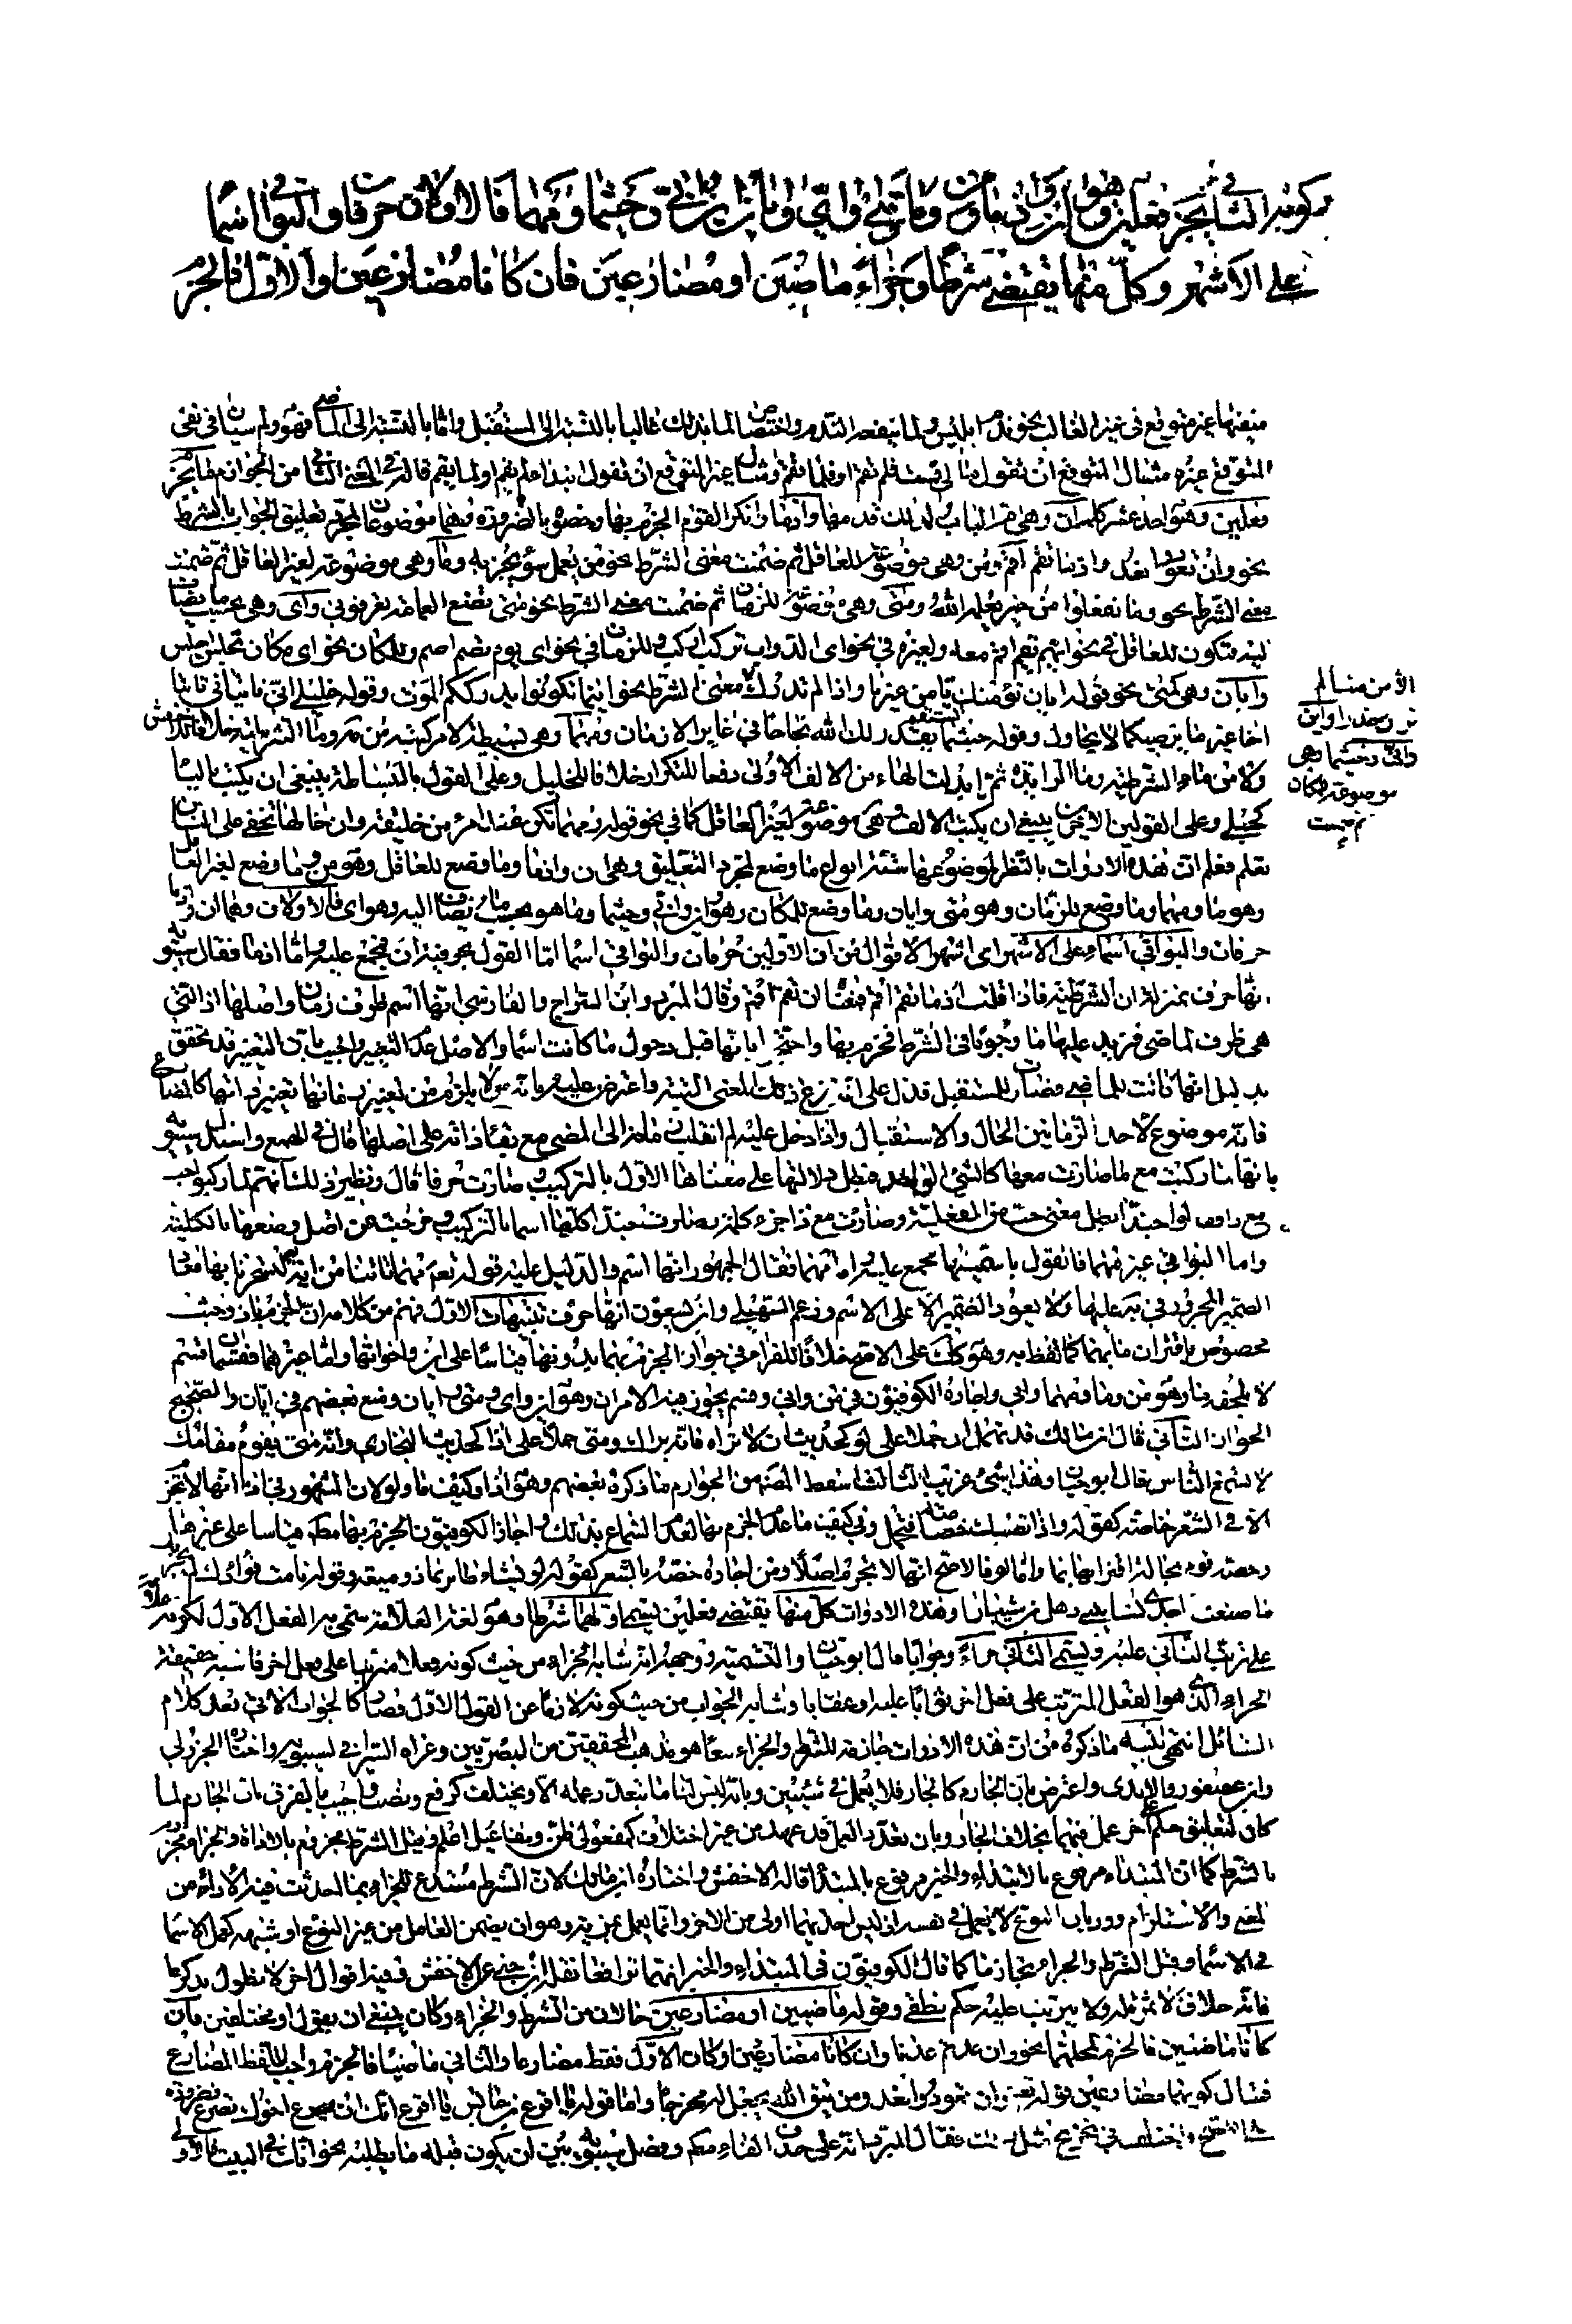 الثاني يجزم فعلين وهو ان واذما ومن وما ومتى وأي وأيان وأين وأنى وحيثما ومهما فالاولان حرفان والبواقي اسما
على الأشهر وكل منها يقتضي شرطا وجزاء ماضيين او مضارعين فان كانا مضارعين او الاول فالجزم
منفيها غير متوقع في غير الغالب نحو ندم ابليس ولما ينفعه الندم واختصاص لما بذلك غالبا بالنسبة الى المستقبل واما بالنسبة الى الماضي فهو ولم سيان في نفي
المتوقع وغيره مثال المتوقع ان تقول مالي قمت فلم تقم او فلما تقم ومثال غير المتوقع ان تقول ابتداء لم يقم او لما يقم قاله الثاني من الجوازم ما يجزم
فعلين وهو احد عشر كلمة ان وهي ام الباب لذلك قدمها واذما وانكر القوم الجزم بها وخصوه بالضرورة وهما موضوعان لمجرد تعليق الجواب بالشرط
نحو وان تعودوا نعد واذما تقم اقم ومن وهي موضوعة للعاقل ثم ضمنت معنى الشرط نحو من يعمل سوءا يجز به وما وهي موضوعة لغير العاقل ثم ضمنت
معنى الشرط نحو وما تفعلوا من خير يعلمه الله ومتى وهي موضوعة للزمان ثم ضمنت معنى الشرط نحو متى تضع العمامة تعرفوني وأي وهي بحسب ما يضاف
اليه فتكون للعاقل نحو ايهم يقم اقم معه ولغيره في نحو اي الدواب تركب اركب وللزمان في نحو اي يوم تصم اصم وللمكان نحو اي مكان تجلس اجلس
وايان وهي كمتى نحو قوله ايان نؤمنك تأمن غيرنا واذا لم تدرك معنى الشرط نحو اينما تكونوا يدرككم الموت وقوله خليلي انى تأتياني تأتيا
اخا غير ما يرضيكما لا يحاول وقوله حيثما تستقم يقدر لك الله نجاحا في غابر الازمان ومهما وهي بسيطة لا مركبة من مه وما الشرطية خلافا للاخفش
ولا من ما الشرطية وما الزائدة ثم ابدلت الهاء من الالف الاولى دفعا للتكرار خلافا للخليل وعلى القول بالبساطة ينبغي ان يكتب بالياء
كحبلى وعلى القولين الاخيرين ينبغي ان يكتب بالالف وهي موضوعة لغير العاقل كما في نحو قوله ومهما تكن عند امرئ من خليقة وان خالها تخفى على الناس
تعلم فعلم ان هذه الادوات بالنظر لموضوعها ستة انواع ما وضع لمجرد التعليق وهي ان واذما وما وضع للعاقل وهو من وما وضع لغير العاقل
وهو ما ومهما وما وضع للزمان وهو متى وايان وما وضع للمكان وهو اين وانى وحيثما وما هو بحسب ما يضاف اليه وهو اي فالاولان وهما ان واذما
حرفان والبواقي اسماء على الاشهر اي اشهر الاقوال من ان الاولين حرفان والبواقي اسما اما القول بحرفية ان فمجمع عليه واما اذما فقال سيبويه
انها حرف بمنزلة ان الشرطية فاذا قلت اذما تقم اقم فمعناه ان تقم اقم وقال المبرد وابن السراج والفارسي انها اسم ظرف زمان واصلها اذ التي
هي ظرف لما مضى فزيد عليها ما وجوبا في الشرط فجزم بها واحتجوا بانها قبل دخول ما كانت اسما والاصل عدم التغيير واجيب بان التغيير قد تحقق
بدليل انها كانت للماضي فصارت للمستقبل فدل على انه نزع ذلك المعنى البتة واعترض عليه بانه لا يلزم من تغيير زمانها تغيير ذاتها كالمضارع
فانه موضوع لاحد الزمانين الحال والاستقبال واذا دخل عليه لم انقلب زمانه الى المضي مع بقاء ذاته على اصلها قال في الهمع واستدل سيبويه
بانها لما ركبت مع ما صارت معها كالشيء الواحد فبطل دلالتها على معناها الاول بالتركيب وصارت حرفا قال ونظير ذلك انهم لما ركبوا حب
مع ذا فقالوا حبذا بطل معنى حب من الفعلية وصارت مع ذا جزء كلمة وصارت حبذا كلها اسما بالتركيب وخرجت عن اصل وضعها بالكلية
واما البواقي غير مهما فالقول باسميتها مجمع عليه واما مهما فقال الجمهور انها اسم والدليل عليه قوله تعالى مهما تأتنا به من آية لتسحرنا بها فعاد
الضمير المجرور في به عليها ولا يعود الضمير الا على الاسم وزعم السهيلي وابن يسعون انها حرف تنبيهات الاول فهم من كلامه ان الجزم باذ وحيث
مخصوص باقتران ما بهما كما لفظ به وهو كذلك على الاصح خلافا للفراء في جواز الجزم بهما بدونها قياسا على اين واخواتها واما غيرهما فقسمان قسم
لا يلحقه ما وهو من وما ومهما وانى واجازه الكوفيون في من وانى وقسم يجوز فيه الامران وهو اين واي ومتى وايان ومنع بعضهم في ايان والصحيح
الجواز الثاني قال ابن مالك قد تهمل ان حملا على لو كحديث ان لا تراه فانه يراك ومتى حملا على اذا كحديث البخاري وانه متى يقوم مقامك
لا يسمع الناس قال ابو حيان وهذا شيء غريب الثالث اسقط المصنف من الجوازم ما ذكره بعضهم وهو اذا وكيف ولو لان المشهور في اذا انها لا تجزم
الا في الشعر خاصة كقوله واذا تصبك خصاصة فتجمل وفي كيف ما عدم الجزم بها لعدم السماع بذلك واجاز الكوفيون الجزم بها مطلقا قياسا على غيرها
وخصه قوم بحالة اقترانها بما واما لو فالاصح انها لا تجزم اصلا ومن اجازه خصه بالشعر كقوله لو يشأ طار بها ذو ميعة وقوله تامت فؤادك لو يحزنك
ما صنعت احدى نساء بني ذهل بن شيبانا وهذه الادوات كل منها يقتضي فعلين يسمى اولهما شرطا وهو لغة العلامة سمي به الفعل الاول لكونه علامة
على ترتب الثاني عليه ويسمى الثاني جزاء وجوابا قال ابو حيان والتسمية ووجهه انه شابه الجزاء من حيث كونه فعلا مترتبا على فعل اخر فاشبه حقيقة
الجزاء الذي هو الفعل المترتب على فعل اخر ثوابا عليه او عقابا وشابه الجواب من حيث كونه لازما عن القول الاول فصار كالجواب الآتي بعد كلام
السائل انتهى تنبيه ما ذكره من ان هذه الادوات جازمة للشرط والجزاء معا هو مذهب المحققين من البصريين وعزاه السيرافي لسيبويه واختاره الجزولي
وابن عصفور والابدي واعترض بان الجازم كالجار فلا يعمل في شيئين وبانه ليس لنا ما يتعدد عمله الا ويختلف كرفع ونصب واجيب بالفرق بان الجازم لما
كان لتعليق حكم على اخر عمل فيهما بخلاف الجار وبان تعدد العمل قد عهد من غير اختلاف كمفعولي ظن ومفاعيل اعلم وقيل الشرط مجزوم بالاداة والجزاء مجزوم
بالشرط كما ان المبتداء مرفوع بالابتداء والخبر مرفوع بالمبتدأ قاله الاخفش واختاره ابن مالك لان الشرط مستدع للجزاء بما احدثت فيه الاداة من
المعنى والاستلزام ورد بان النوع لا يعمل في نفسه اذ ليس احدهما اولى من الاخر وانما يعمل بمزية وهو ان يضمن العامل من غير النوع او شبهه كعمل الاسما
في الاسما وقيل الشرط والجزاء تجازما كما قال الكوفيون في المبتداء والخبر انهما ترافعا نقله ابن جني عن الاخفش وفيه اقوال اخر لا نطول بذكرها
فانه خلاف لا ثمرة له ولا يترتب عليه حكم نطقي وقوله ماضيين او مضارعين حالان من الشرط والجزاء وكان ينبغي ان يقول او مختلفين فان
كانا ماضيين فالجزم لمحلهما نحو وان عدتم عدنا وان كانا مضارعين او كان الاول فقط مضارعا والثاني ماضيا فالجزم واجب للفظ المضارع
فمثال كونهما مضارعين قوله تعالى وان تعودوا نعد ومن يتق الله يجعل له مخرجا واما قوله يا اقرع بن حابس يا اقرع انك ان يصرع اخوك تصرع فضرورة
في الاصح واختلف في تخريج مثل ذلك فقال المبرد انه على حذف الفاء مطلقا وفصل سيبويه بين ان يكون قبله ما يطلبه نحو انك في البيت فالاولى
الامن منا لم
تزل حذرا واين
وانى وحيثما وهي
موضوعة للمكان
ثم ضمنت